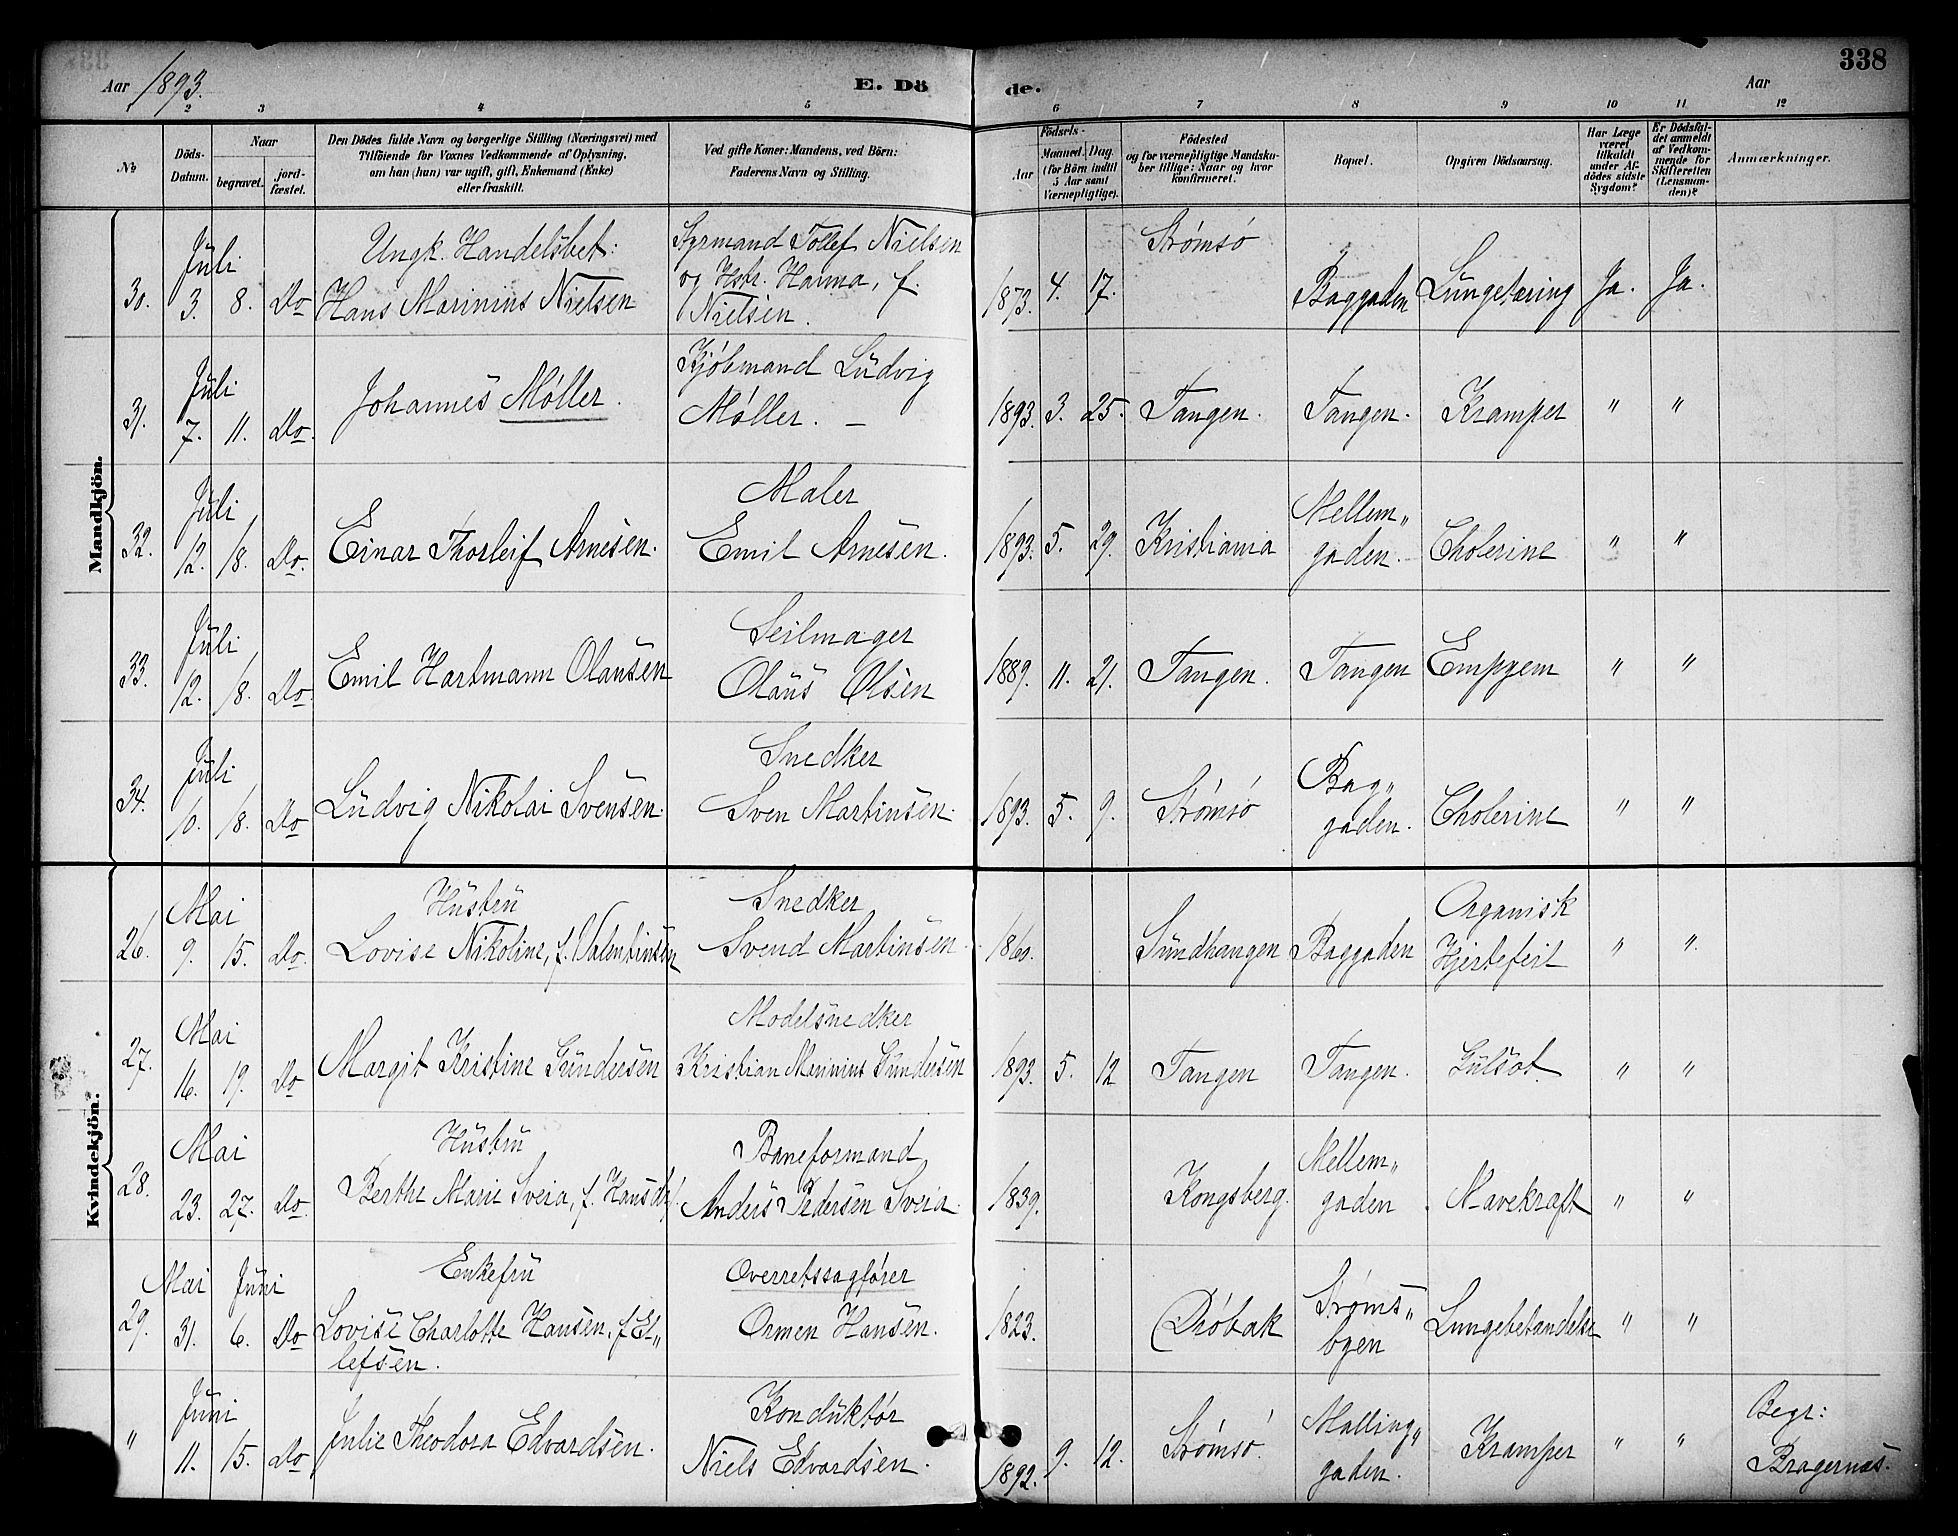 338
Aar 1893.
E. Dö de.
Aar
1 2 3 4 5 6 7 8 9 10 11 12
No
Döds-Datum.
Naar
begravet.
jord-fæstet.
Den Dödes fulde Navn og borgerlige Stilling (Næringsvei) med
Tilföiende for Voxnes Vedkommende af Oplysning,
om han (hun) var ugift, gift, Enkemand (Enke)
eller fraskilt.
Ved gifte Koner: Mandens, ved Börn:
Faderens Navn og Stilling.
Födsels-
Aar
Maaned. Dag.
(for Börn indtil
5 Aar samt
Værnepligtige).
Födested
og for værnepligtige Mandska-
ber tillige: Naar og hvor
konfirmeret.
Bopæl.
Opgiven Dödsaarsag.
Har Læge
været
tilkaldt
under Af-
dödes sidste
Sygdom?
Er Dödsfal-
det anmeldt
af Vedkom-
mende for
Skifteretten
(Lensman-
den)?
Anmærkninger.
Mandkjön.
30. Juli 3. 8. Do Ungk. Handelsbet:
Hans Marinius Nielsen
Styrmand Tollef Nielsen
og Hstr. Hanna, f.
Nielsen.
1873. 4. 17. Strømsø Baggaden Lungetæring Ja. Ja.
31. Juli 7. 11. Do. Johannes Møller.
Kjøbmand Ludvig
Møller. –
1893. 3. 25. Tangen. Tangen. Kramper " "
32. Juli 12. 18. Do. Einar Thorleif Arnesen.
Maler
Emil Arnesen.
1893. 5. 29. Kristiania Mellem„
gaden. Cholerine " "
33. Juli 12. 18. Do. Emil Hartmann Olausen
Seilmager
Olaus Olsen
1889. 11. 21. Tangen. Tangen Empyem " "
34. Juli 10. 18. Do Ludvig Nikolai Svensen.
Snedker
Sven Martinsen.
1893. 5. 9. Strømsø Bag„
gaden. Cholerine " "
Kvindekjön.
26. Mai 9. 15. Do. Hustru
Lovise Nikoline, f. Valentinsen
Snedker
Svend Martinsen
1860. Sundhaugen Baggaden Organisk
Hjertefeil " "
27. Mai 16. 19. Do Margit Kristine Gundersen
Modelsnedker
Kristian Marinius Gundersen
1893. 5. 12 Tangen Tangen. Gulsot. " "
28. Mai 23. 27. Do. Hustru
Berthe Marie Sveia, f. Hansdtr.
Baneformand
Anders Pedersen Sveia.
1839. Kongsberg. Mellem„
gaden Mavekræft " "
29. Mai 31. Juni 6. Do Enkefru
Lovise Charlotte Hansen, f. El„
lefsen.
Overretssagfører
Ormen Hansen.
1823. Drøbak Strøms„
byen Lungebetændelse " "
" Juni 11. 15. Do Julie Theodora Edvardsen.
Konduktør
Niels Edvardsen.
1892. 9. 12. Strømsø Malling„
gaden. Kramper " " Begr:
Bragernæs.